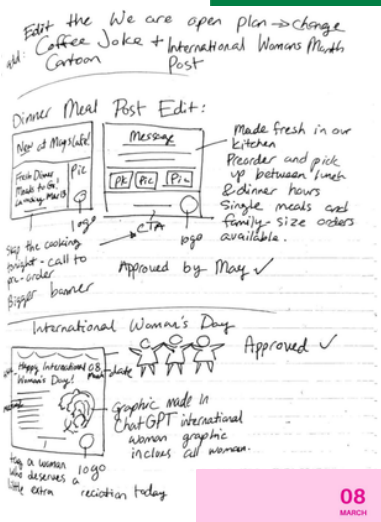 Edit the We are open plan → change
add: Coffee Joke + International Womans Month
Cartoon Post
Dinner Meal Post Edit:
New at Mays Cafe!
Fresh Dinner
Meals to Go,
Pic
logo
Message
Pic Pic Pic
CTA
logo
Made fresh in our
kitchen
Preorder and pick
up between lunch
& dinner hours
Single meals and
family-size orders
available.
Skip the cooking
tonight - call to
pre-order
Bigger banner
Approved by May ✓
International Woman's Day
Happy International
Woman's Day!
08
March
date
Approved ✓
graphic made in
ChatGPT international
woman graphic
inclues all woman.
tag a woman
who deserves a
little extra reciation today
logo
08
MARCH